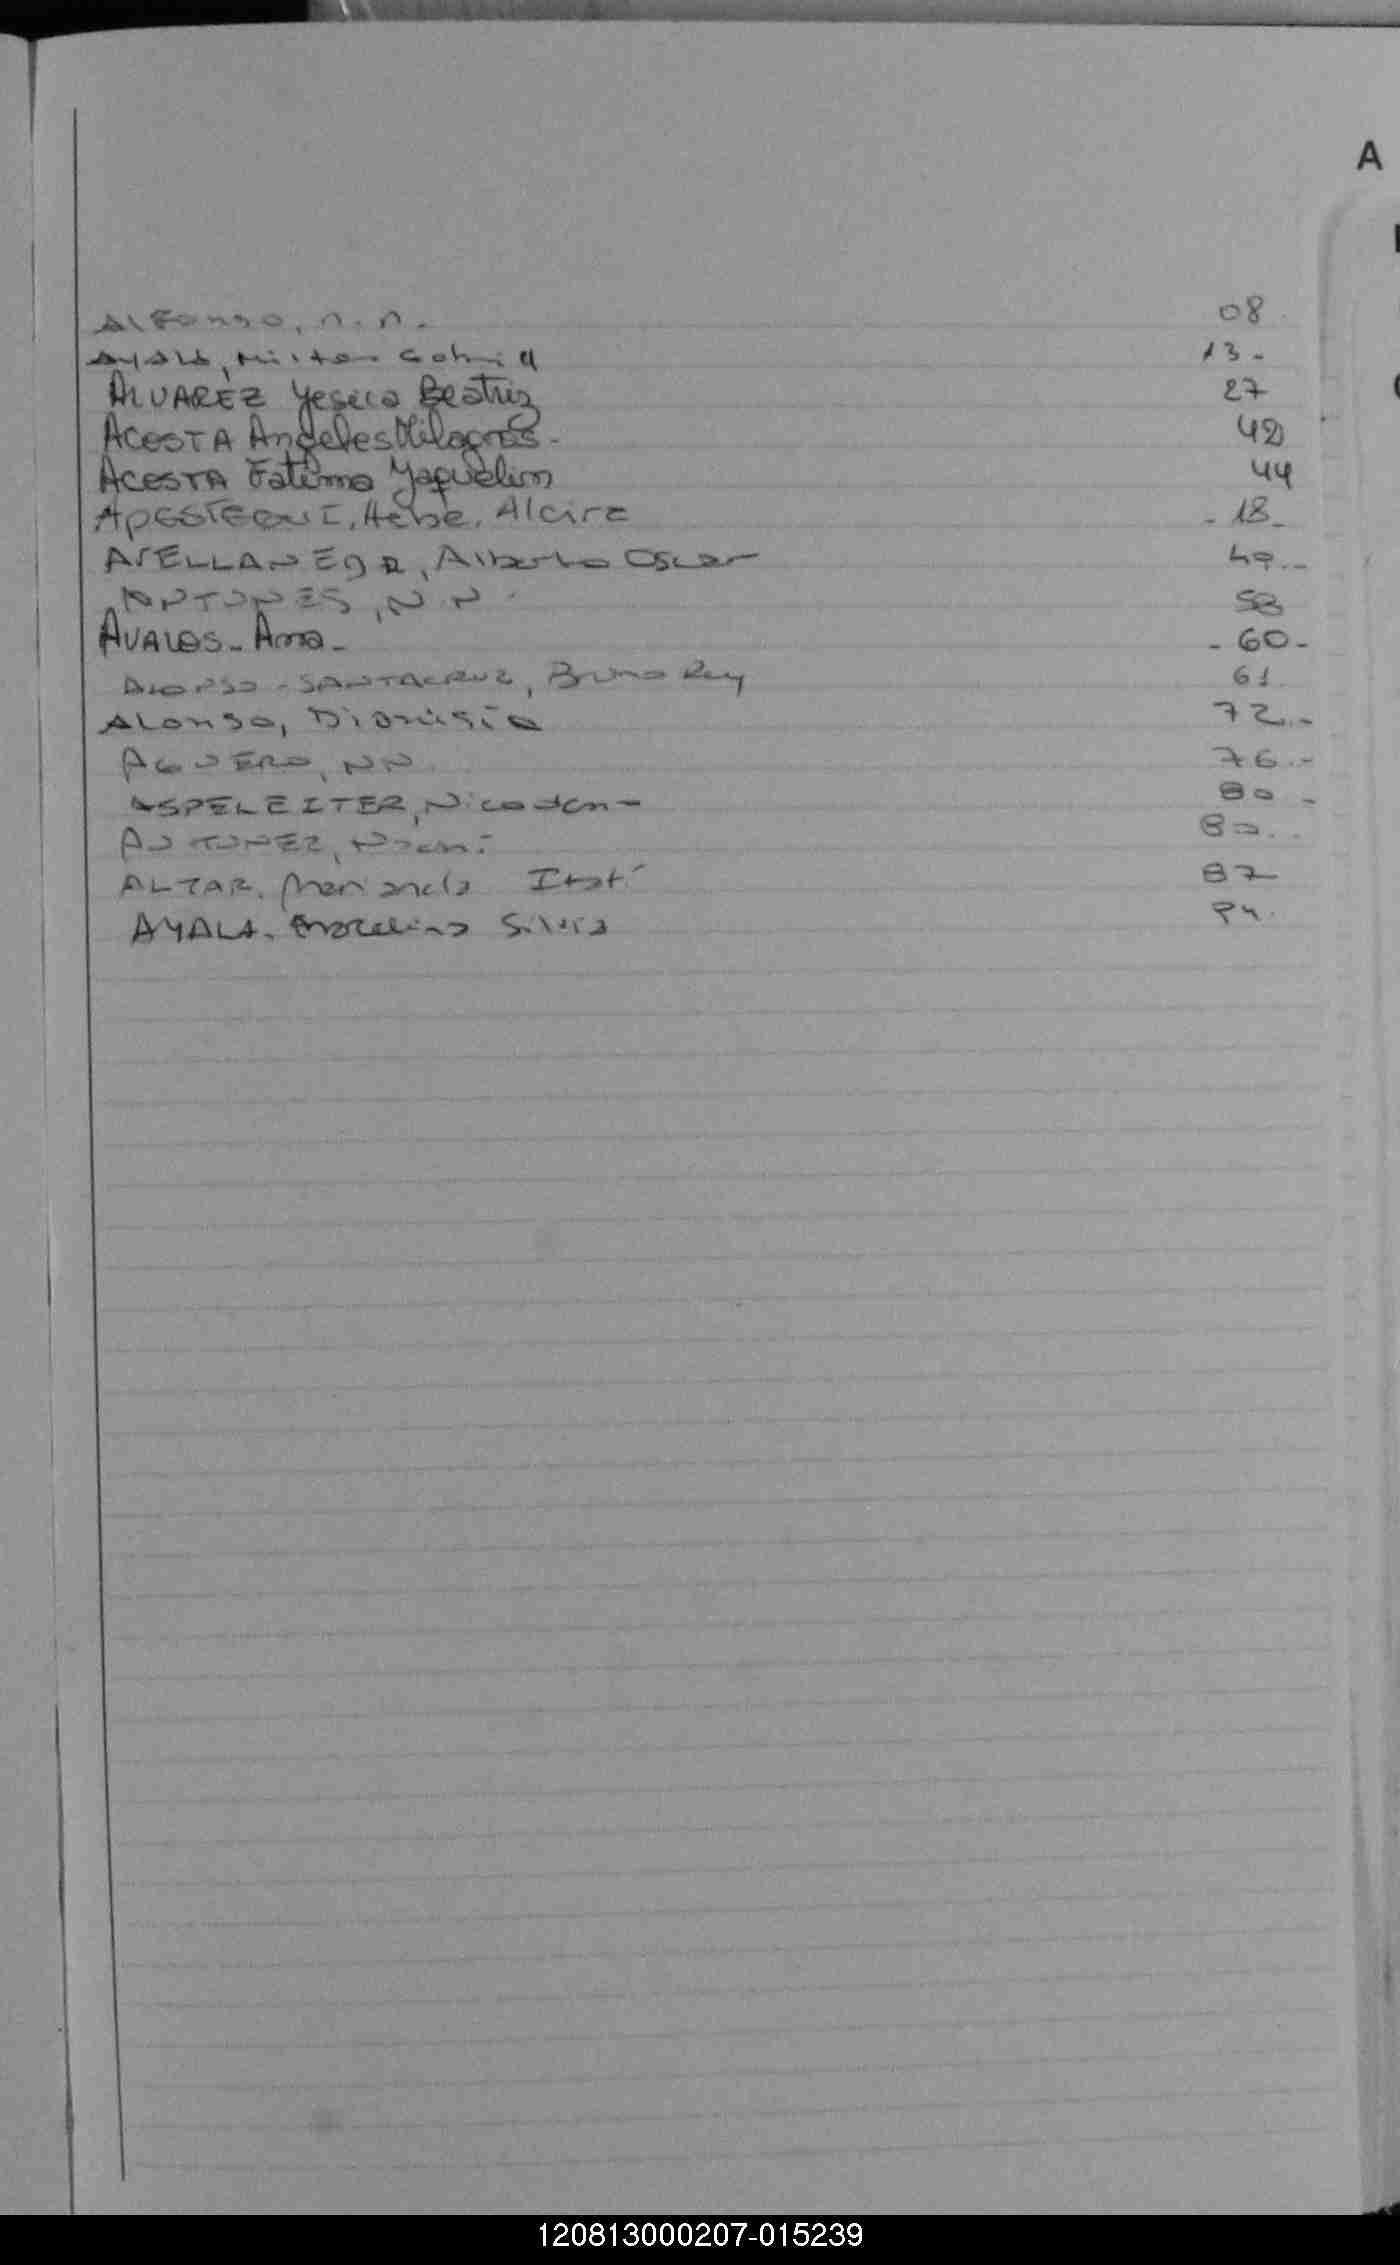 A
Alfonso, n.n. 08
AYALA, Milton Gabriel 13-
ALVAREZ Yesica Beatriz 27
ACOSTA Angeles Milagros- 42
ACOSTA Fatima Yaquelin 44
APESTEGUI, Hebe, Alcira -18-
AVELLANEDA, Alberto Oscar 49.-
ANTUNES, N.N. 58
AVALOS- Ana- -60-
ALONSO-SANTACRUZ, Bruno Rey 61
ALONSO, Dionisio 72.-
AGUERO, NN 76.-
ASPELEITER, 80-
ANTUNEZ, Noemi 80..
ALTAR. Marianela Itatí 87
AYALA. Marcelina Silvia 94.
120813000207-015239